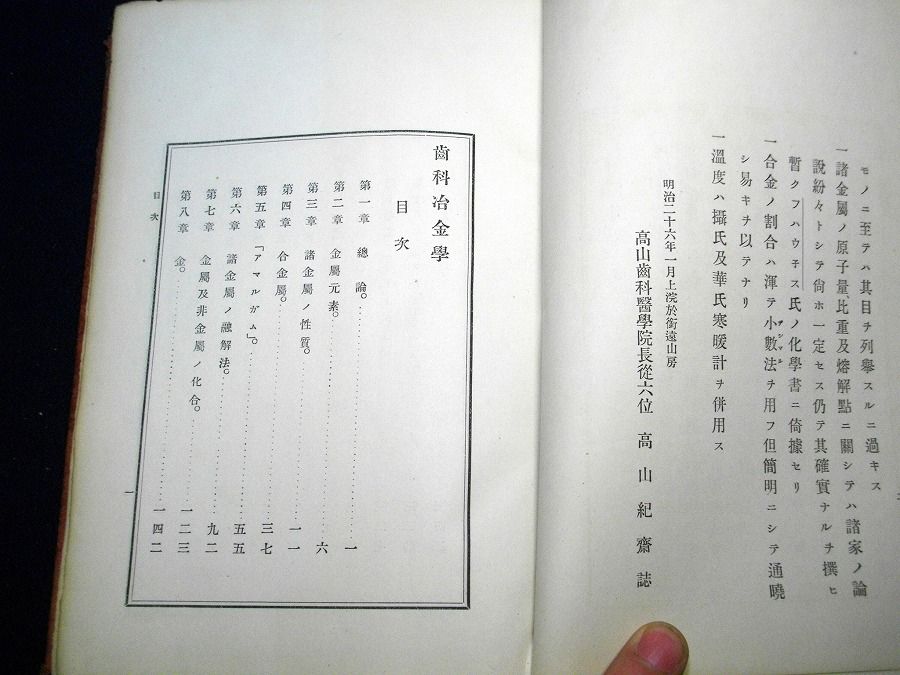 モノニ至テハ其目ヲ列擧スルニ過キス
一諸金屬ノ原子量、比重及熔解點ニ關シテハ諸家ノ論
說紛々トシテ尙ホ一定セス仍テ其確實ナルヲ撰ヒ
暫クフハウ子ス氏ノ化學書ニ倚據セリ
一合金ノ割合ハ渾テ小數法ヲ用フ但簡明ニシテ通曉
シ易キヲ以テナリ
一溫度ハ攝氏及華氏寒暖計ヲ併用ス
明治二十六年一月上浣於銜遠山房
高山齒科醫學院長從六位 高山紀齋誌
齒科冶金學
目次
第一章 總論。 一
第二章 金屬元素。 六
第三章 諸金屬ノ性質。 一一
第四章 合金屬。 三七
第五章 「アマルガム」。 五五
第六章 諸金屬ノ融解法。 九二
第七章 金屬及非金屬ノ化合。 一二三
第八章 金。 一四二
目次
一